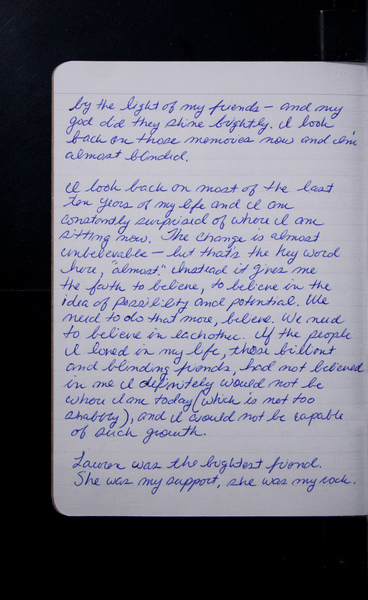 by the light of my friends – and my
god did they shine brightly. I look
back on those memories now and I'm
almost blinded.
I look back on most of the last
ten years of my life and I am
constantly surprised of where I am
sitting now. The change is almost
unbelievable – but that's the key word
here, "almost." Instead it gives me
the faith to believe, to believe in the
idea of possibility and potential. We
need to do that more, believe. We need
to believe in eachother. If the people
I loved in my life, those brilliant
and blinding friends, had not believed
in me I definitely would not be
where I am today (which is not too
shabby), and I would not be capable
of such growth.
Lauren was the brightest friend.
She was my support, she was my rock.